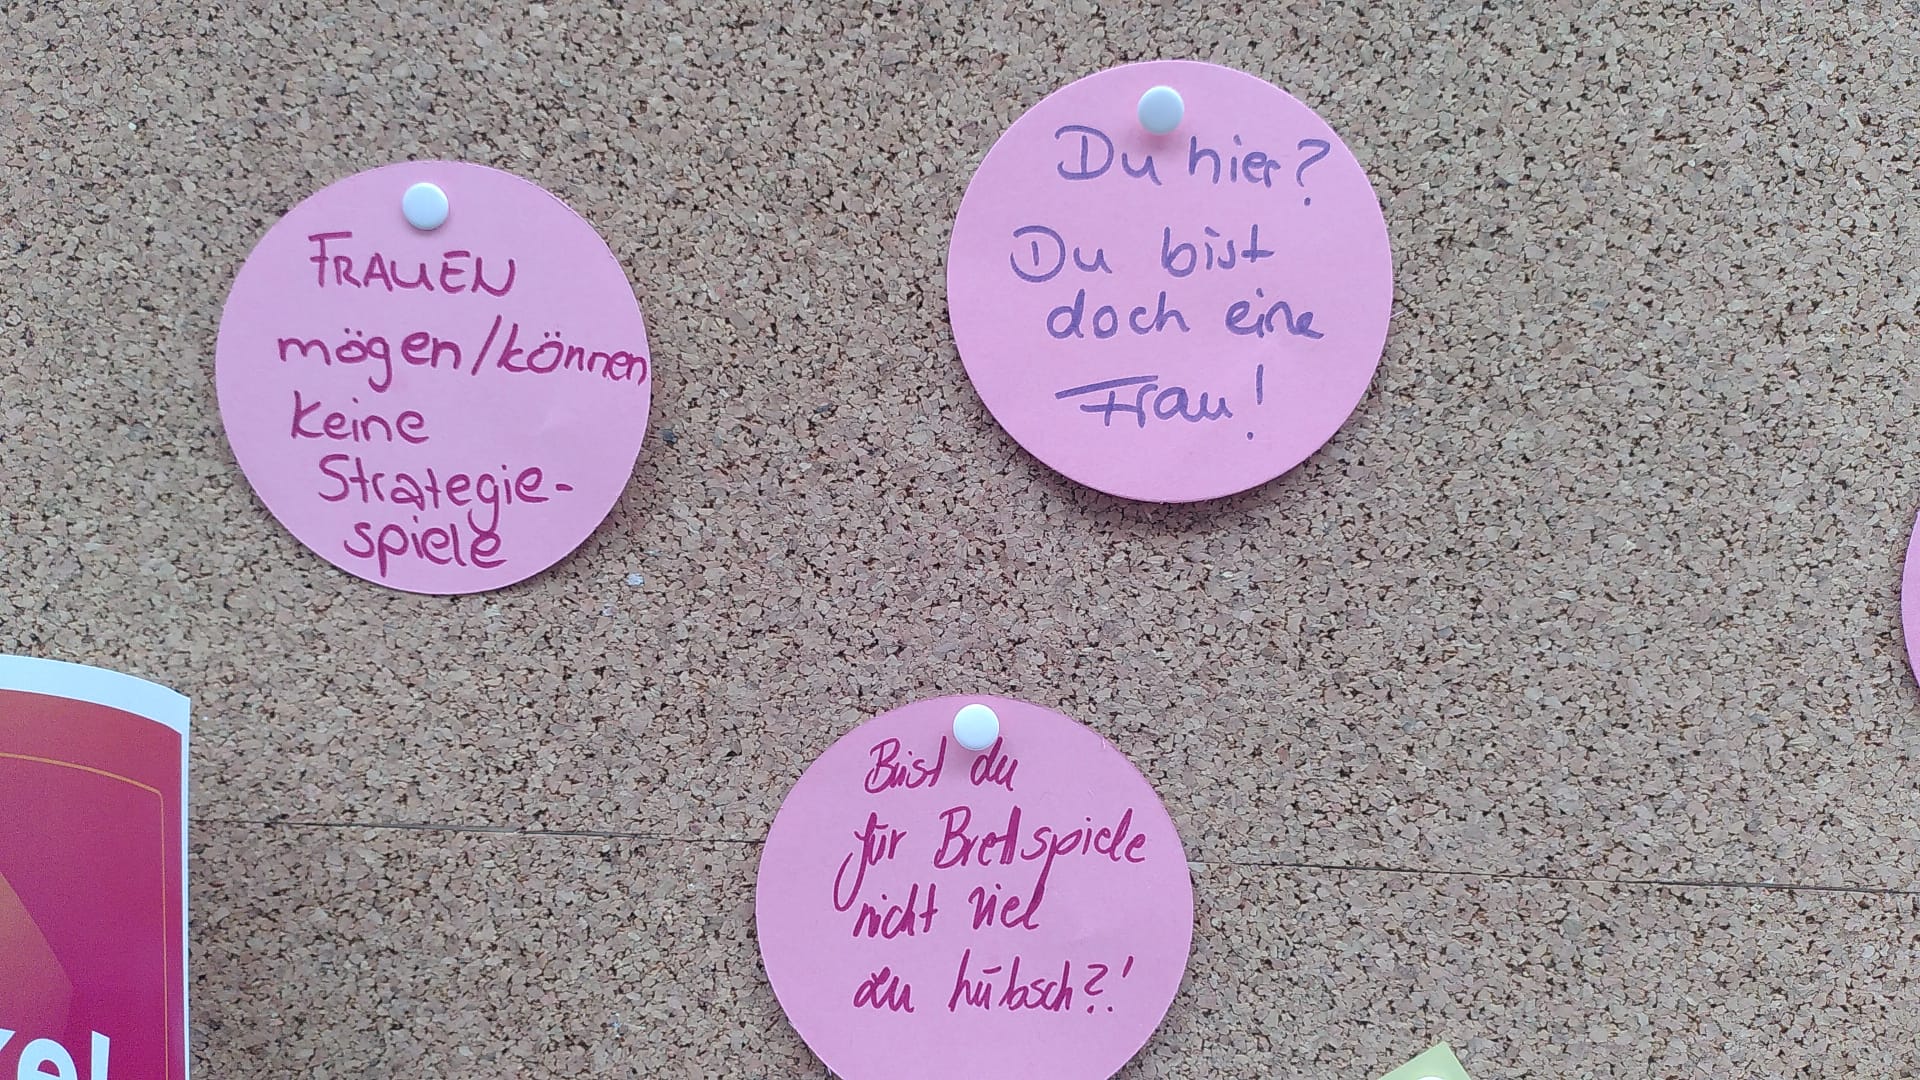 FRAUEN
mögen/können
keine
Strategie-
spiele
Du hier?
Du bist
doch eine
Frau!
Bist du
für Brettspiele
nicht viel
zu hübsch?!